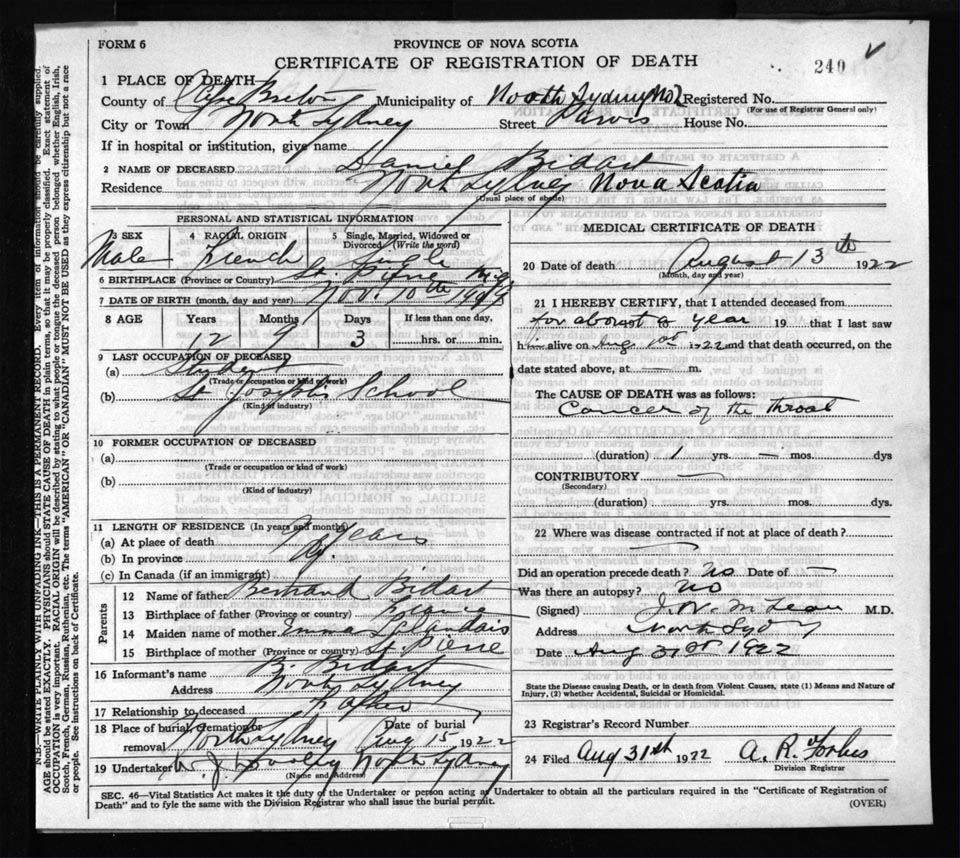 FORM 6
PROVINCE OF NOVA SCOTIA
CERTIFICATE OF REGISTRATION OF DEATH
240
1 PLACE OF DEATH
County of Cape Breton Municipality of North Sydney No 2 Registered No.
(For use of Registrar General only)
City or Town North Sydney Street House No.
If in hospital or institution, give name
2 NAME OF DECEASED Daniel Bidart
Residence North Sydney Nova Scotia
(Usual place of abode)
PERSONAL AND STATISTICAL INFORMATION
3 SEX 4 RACIAL ORIGIN 5 Single, Married, Widowed or Divorced (Write the word)
Male French Single
6 BIRTHPLACE (Province or Country) St. Pierre Miq
7 DATE OF BIRTH (month, day and year) Nov. 10th
8 AGE Years Months Days If less than one day,
12 9 3 hrs. or min.
9 LAST OCCUPATION OF DECEASED
(a) Student
(Trade or occupation or kind of work)
(b) St Josephs School
(Kind of industry)
10 FORMER OCCUPATION OF DECEASED
(a)
(Trade or occupation or kind of work)
(b)
(Kind of industry)
11 LENGTH OF RESIDENCE (In years and months)
(a) At place of death years
(b) In province
(c) In Canada (if an immigrant)
Parents
12 Name of father Bertrand Bidart
13 Birthplace of father (Province or country)
14 Maiden name of mother Emma
15 Birthplace of mother (Province or country) St. Pierre
16 Informant's name B. Bidart
Address North Sydney
17 Relationship to deceased Father
18 Place of burial, cremation or removal North Sydney Date of burial Aug 15 1922
19 Undertaker North Sydney
(Name and Address)
MEDICAL CERTIFICATE OF DEATH
20 Date of death August 13th 1922
(Month, day and year)
21 I HEREBY CERTIFY, that I attended deceased from
for about a year 19 that I last saw
him alive on Aug 1922 and that death occurred, on the
date stated above, at — m.
The CAUSE OF DEATH was as follows:
Cancer of the throat
(duration) 1 yrs. — mos. dys
CONTRIBUTORY
(Secondary)
(duration) yrs. mos. dys.
22 Where was disease contracted if not at place of death?
Did an operation precede death? No Date of —
Was there an autopsy? No
(Signed) J. W. McLean M.D.
Address North Sydney
Date Aug 31st 1922
State the Disease causing Death, or in death from Violent Causes, state (1) Means and Nature of Injury, (2) whether Accidental, Suicidal or Homicidal.
23 Registrar's Record Number
24 Filed Aug 31th 1922 A. R. Forbes
Division Registrar
SEC. 46—Vital Statistics Act makes it the duty of the Undertaker or person acting as Undertaker to obtain all the particulars required in the "Certificate of Registration of
Death" and to fyle the same with the Division Registrar who shall issue the burial permit.
(OVER)
N.B.—WRITE PLAINLY WITH UNFADING INK—THIS IS A PERMANENT RECORD. Every item of information should be carefully supplied.
AGE should be stated EXACTLY. PHYSICIANS should STATE CAUSE OF DEATH in plain terms, so that it may be properly classified. Exact statement of
OCCUPATION is very important. RACIAL ORIGIN will be described by stating to what people or tongue the deceased person belonged whether English, Irish,
Scotch, French, German, Russian, Ruthenian, etc. The terms "AMERICAN" OR "CANADIAN" MUST NOT BE USED as they express citizenship but not a race
or people. See instructions on back of Certificate.